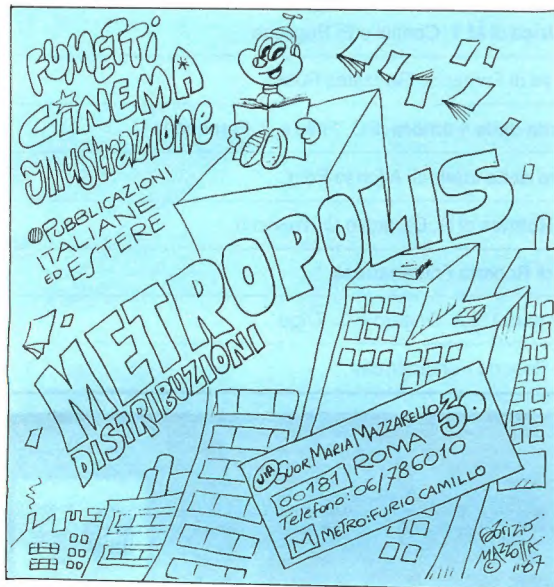 FUMETTI
CINEMA
illUSTRAZIONE
PUBBLICAZIONI
ITALIANE
ED ESTERE
METROPOLIS
DISTRIBUZIONI
VIA SUOR MARIA MAZZARELLO 30
00181 ROMA
Telefono: 06/786010
M METRO: FURIO CAMILLO
FABRIZIO
MAZZOTTA